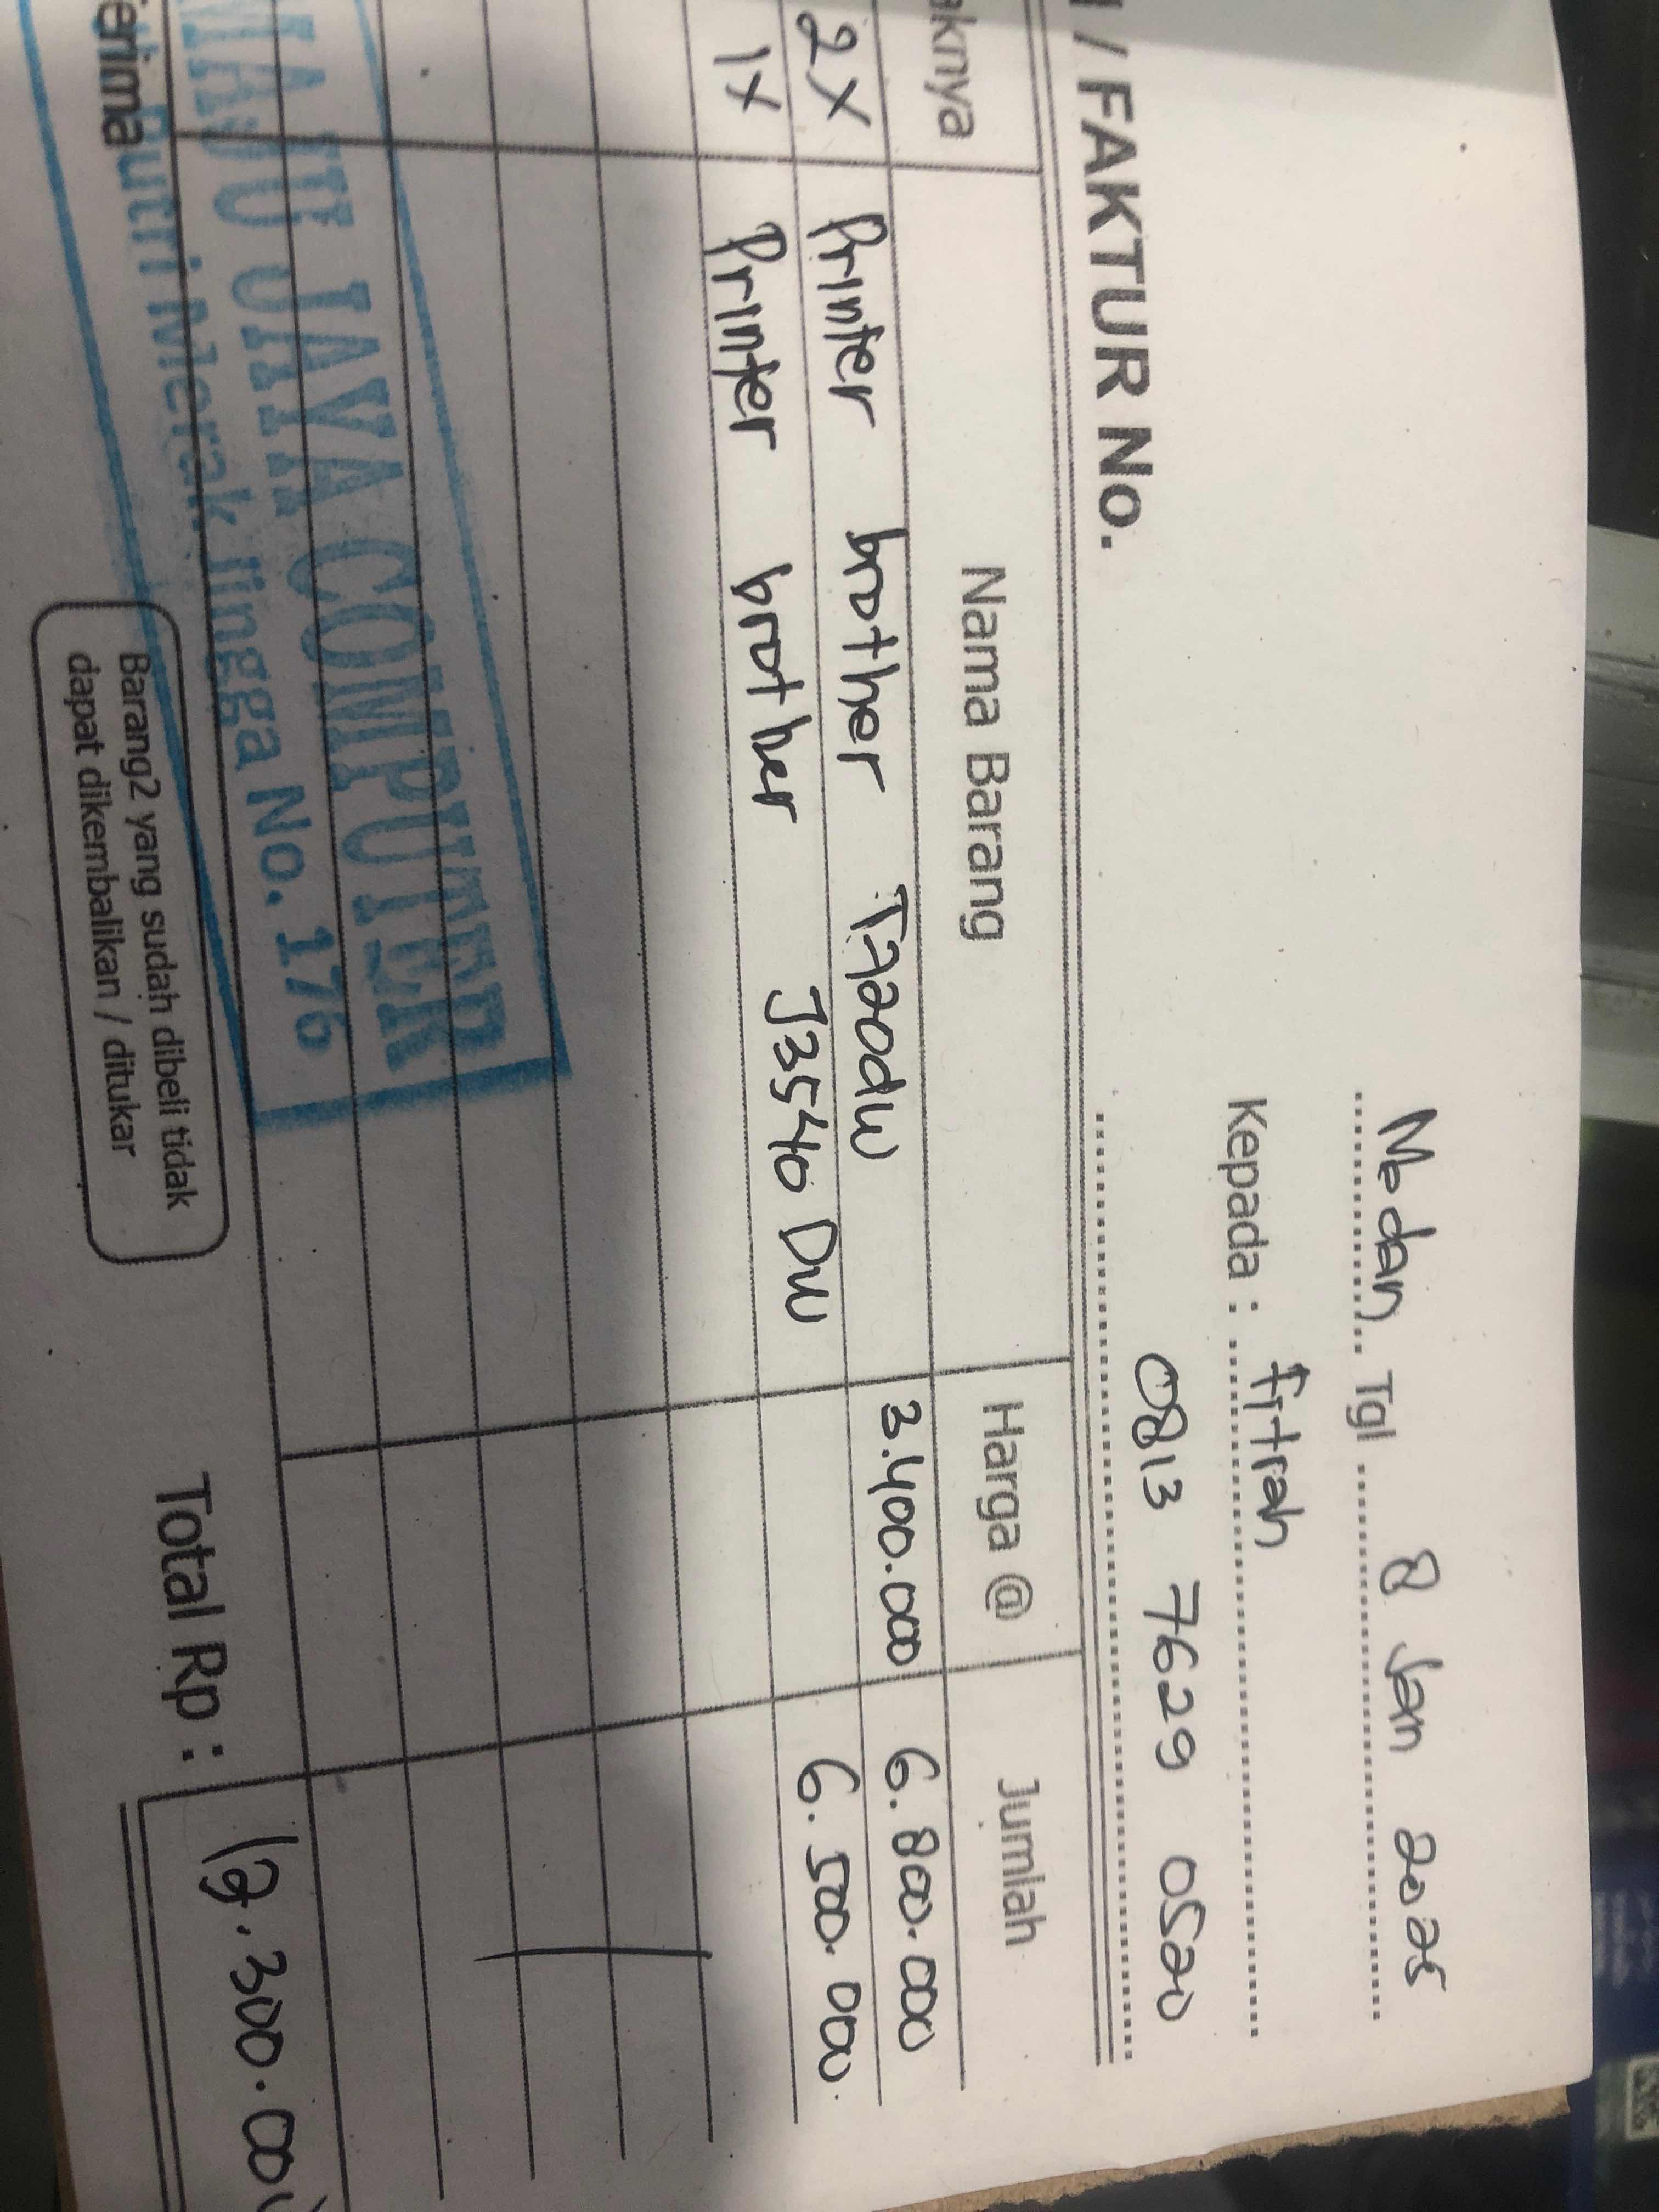 Medan Tgl 8 Jan 2025
Kepada : fitrah
0813 7629 0520
/ FAKTUR No.
aknya Nama Barang Harga @ Jumlah
2x Printer brother T720dw 3.400.000 6.800.000
1x Printer brother J3540 DW 6.500.000
MAJU JAYA COMPUTER
Putri Merak Jingga No. 176
erima
Barang2 yang sudah dibeli tidak
dapat dikembalikan / ditukar
Total Rp : 13.300.000